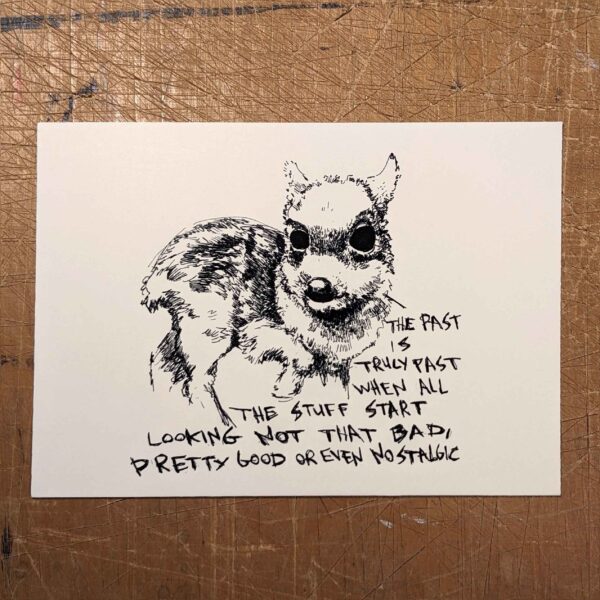 THE PAST
IS
TRULY PAST
WHEN ALL
THE STUFF START
LOOKING NOT THAT BAD,
PRETTY GOOD OR EVEN NOSTALGIC